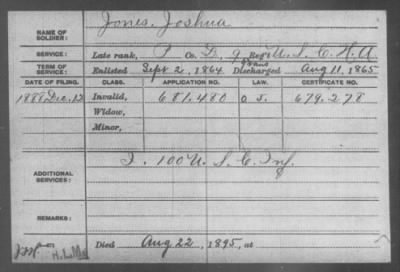 NAME OF SOLDIER: Jones, Joshua
SERVICE: Late rank, P Co. B, 9 Reg't U. S. C. H. A
TERM OF SERVICE: Enlisted Sept 2, 1864 Discharged Aug 11, 1865
DATE OF FILING. CLASS. APPLICATION NO. LAW. CERTIFICATE NO.
1888 Dec. 12 Invalid, 681.480 679.278
Widow,
Minor,
ADDITIONAL SERVICES: I. 100 U. S. C. Inf.
REMARKS:
Died Aug 22, 1895, at